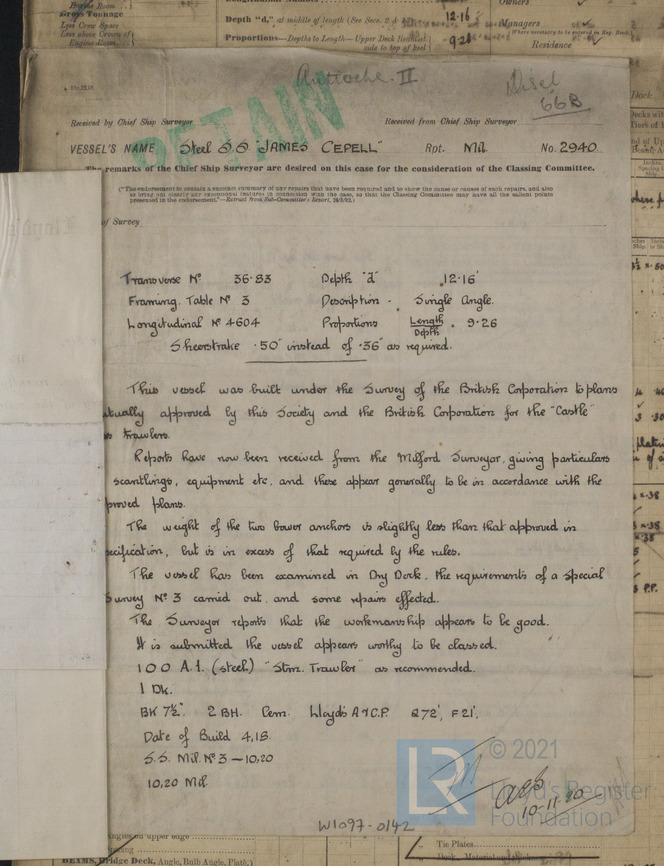 Gross Tonnage
Less Crew Space
Less above Crown of
Engine Room
Depth "d," at middle of length (See Secs. 2 &
12·16
Proportions—Depths to Length—Upper Deck
side to top of keel
9·26
Owners
Managers
(Where necessary to be entered in Reg. Book)
Residence
RETAIN
Antioche. II
66B
Received by Chief Ship Surveyor
Received from Chief Ship Surveyor
VESSEL'S NAME Steel S.S "JAMES CEPELL" Rpt. Mil. No. 2940
The remarks of the Chief Ship Surveyor are desired on this case for the consideration of the Classing Committee.
("The endorsement to contain a succinct summary of any repairs that have been required and to show the cause or causes of such repairs, and also
to bring out clearly any exceptional features in connection with the case, so that the Classing Committee may have all the salient points
presented in the endorsement."—Extract from Sub-Committee's Report,
of Survey
Transverse No 36·83 Depth "d" 12·16'
Framing. Table No 3 Description - Single Angle.
Longitudinal No 4604 Proportions Length/Depth. 9·26
Sheerstrake ·50" instead of ·36" as required.
This vessel was built under the Survey of the British Corporation to plans
tually approved by this Society and the British Corporation for the "Castle"
s trawlers.
Reports have now been received from the Milford Surveyor, giving particulars
scantlings, equipment etc, and these appear generally to be in accordance with the
proved plans.
The weight of the two bower anchors is slightly less than that approved in
ecification, but is in excess of that required by the rules.
The vessel has been examined in Dry Dock, the requirements of a special
urvey No 3 carried out, and some repairs effected.
The Surveyor reports that the workmanship appears to be good.
It is submitted the vessel appears worthy to be classed.
100 A.1. (steel) "Stm. Trawler" as recommended.
1 Dk.
BK 7½" 2 BH. Cem. Lloyd's A & C.P. Q72', F21'.
Date of Build 4,18.
S.S. Mil. No 3 — 10,20
10,20 Mil.
10-11-20
W1097-0142
LR
© 2021
Lloyd's Register
Foundation
Tie Plates
BEAMS, Bridge Deck, Angle, Bulb Angle, Plate,)